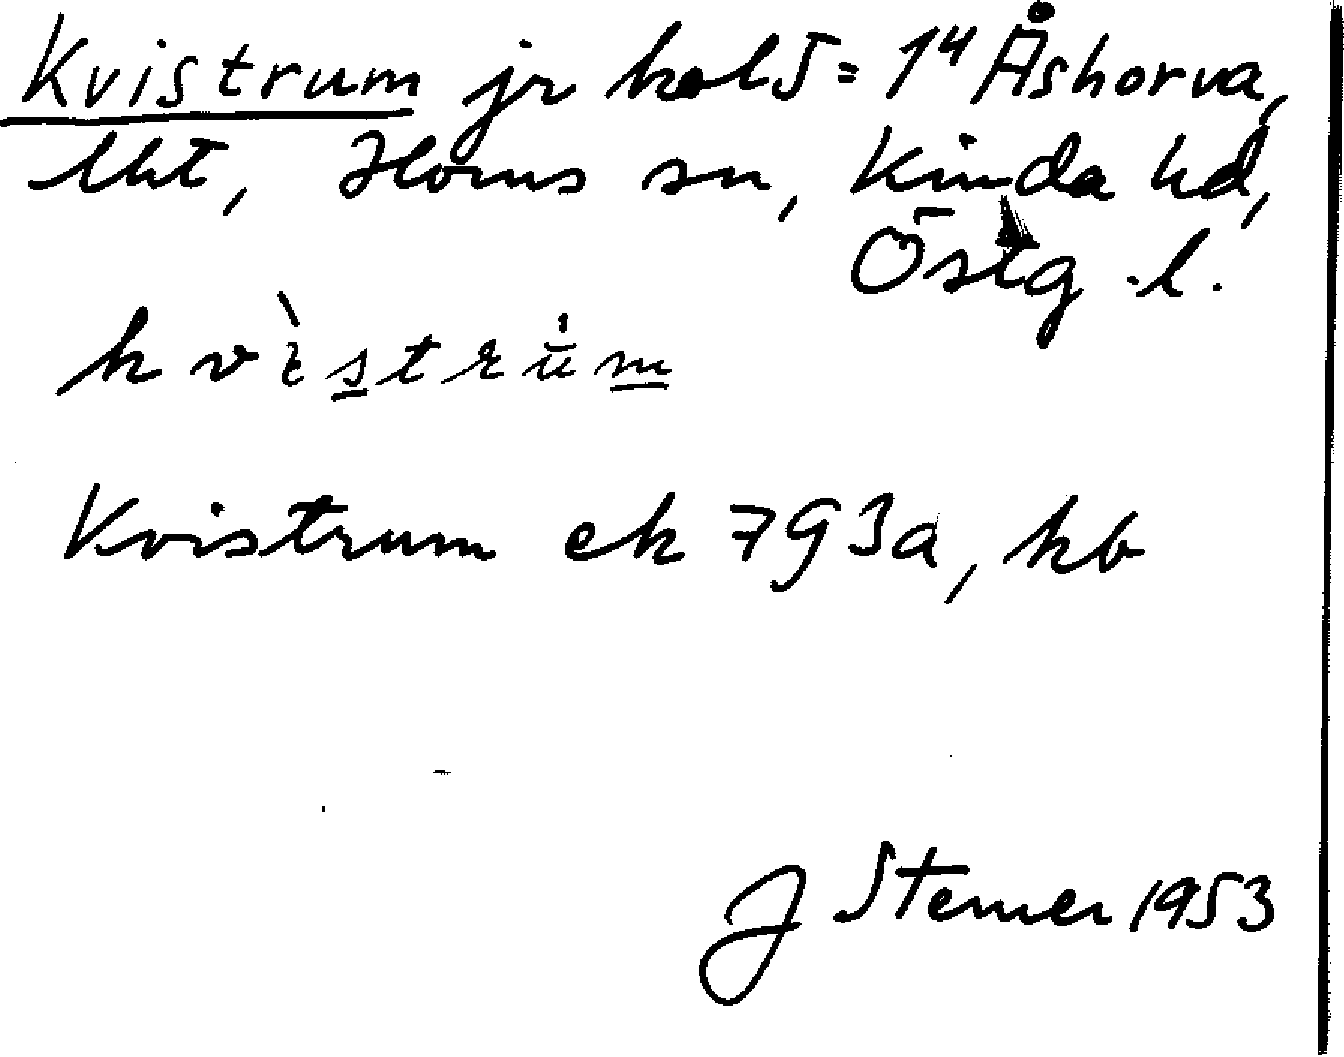 Kvistrum jr kols = 1⁴ Åshorva,
lht, Horns sn, Kinda hd,
Östg. l.
kvìstrùm
Kvistrum ek 793a, kb
J Sterner 1953